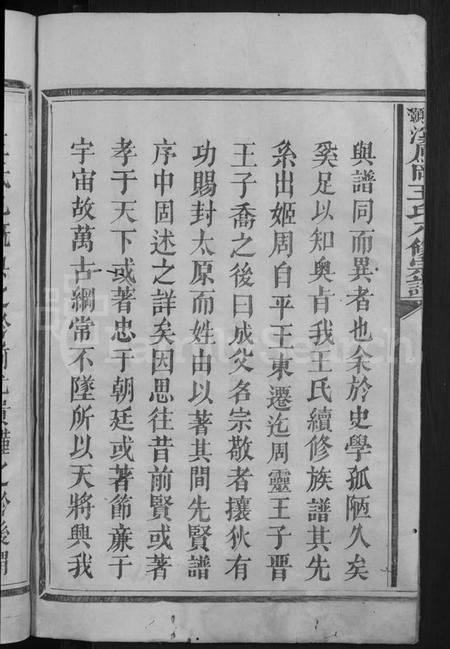 與譜同而異者也余於史學孤陋久矣
奚足以知奧古我王氏續修族譜其先
系出姬周自平王東遷迄周靈王子晋
王子喬之後曰成父名宗敬者攘狄有
功賜封太原而姓由以著其間先賢譜
序中固述之詳矣因思往昔前賢或著
孝于天下或著忠于朝廷或著節亷于
宇宙故萬古綱常不墜所以天將興我